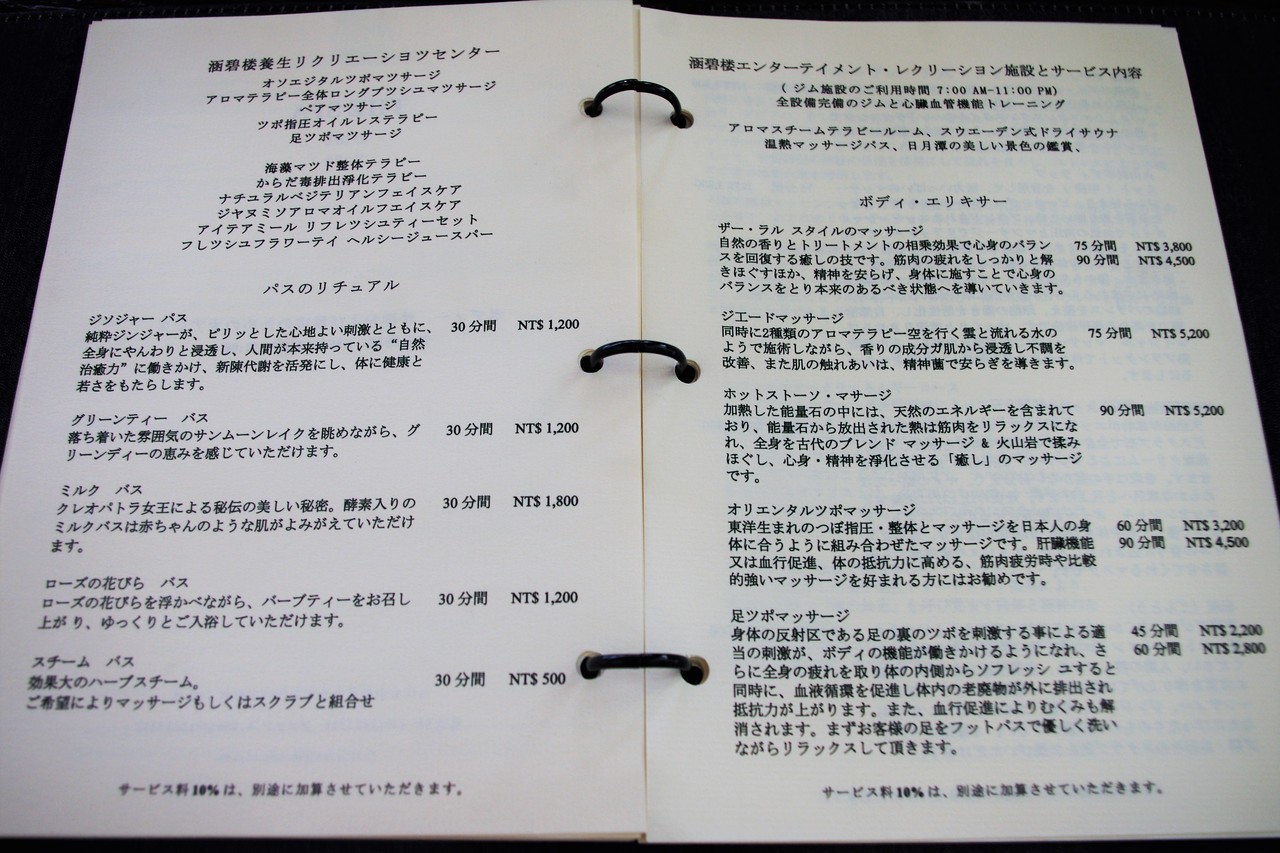 涵碧楼養生リクリエーシヨツセンター
オソエジタルツボマツサージ
アロマテラピー全体ロングブツシユマツサージ
ペアマツサージ
ツボ指圧オイルレステラピー
足ツボマツサージ
海藻マツド整体テラピー
からだ毒排出淨化テラピー
ナチュラルベジテリアンフェイスケア
ジャヌミソアロマオイルフェイスケア
アイテアミール リフレツシュティーセット
フレツシユフラワーテイ ヘルシージュースバー
バスのリチュアル
ジソジャー バス
純粋ジンジャーが、ピリッとした心地よい刺激とともに、 30 分間 NT$ 1,200
全身にやんわりと浸透し、人間が本来持っている“自然
治癒力”に働きかけ、新陳代謝を活発にし、体に健康と
若さをもたらします。
グリーンティー バス
落ち着いた雰囲気のサンムーンレイクを眺めながら、グ 30 分間 NT$ 1,200
リーンディーの恵みを感じていただけます。
ミルク バス
クレオパトラ女王による秘伝の美しい秘密。酵素入りの 30 分間 NT$ 1,800
ミルクバスは赤ちゃんのような肌がよみがえていただけ
ます。
ローズの花びら バス
ローズの花びらを浮かべながら、バーブティーをお召し 30 分間 NT$ 1,200
上がり、ゆっくりとご入浴していただけます。
スチーム バス
効果大のハーブスチーム。 30 分間 NT$ 500
ご希望によりマッサージもしくはスクラブと組合せ
サービス料 10% は、別途に加算させていただきます。
涵碧楼エンターテイメント・レクリーション施設とサービス内容
( ジム施設のご利用時間 7:00 AM-11:00 PM)
全設備完備のジムと心臓血管機能トレーニング
アロマスチームテラピールーム、スウエーデン式ドライサウナ
温熱マッサージバス、日月潭の美しい景色の鑑賞、
ボディ・エリキサー
ザー・ラル スタイルのマッサージ
自然の香りとトリートメントの相乗効果で心身のバラン 75 分間 NT$ 3,800
スを回復する癒しの技です。筋肉の疲れをしっかりと解 90 分間 NT$ 4,500
きほぐすほか、精神を安らげ、身体に施すことで心身の
バランスをとり本来のあるべき状態へを導いていきます。
ジエードマッサージ
同時に2種類のアロマテラピー空を行く雲と流れる水の 75 分間 NT$ 5,200
ようで施術しながら、香りの成分ガ肌から浸透し不調を
改善、また肌の触れあいは、精神菌で安らぎを導きます。
ホットストーソ・マサージ
加熱した能量石の中には、天然のエネルギーを含まれて 90 分間 NT$ 5,200
おり、能量石から放出された熱は筋肉をリラックスにな
れ、全身を古代のブレンド マッサージ & 火山岩で揉み
ほぐし、心身・精神を淨化させる「癒し」のマッサージ
です。
オリエンタルツボマッサージ
東洋生まれのつぼ指圧・整体とマッサージを日本人の身 60 分間 NT$ 3,200
体に合うように組み合わぜたマッサージです。肝臓機能 90 分間 NT$ 4,500
又は血行促進、体の抵抗力に高める、筋肉疲労時や比較
的強いマッサージを好まれる方にはお勧めです。
足ツポマッサージ
身体の反射区である足の裏のツボを刺激する事による適 45 分間 NT$ 2,200
当の刺激が、ボディの機能が働きかけるようになれ、さ 60 分間 NT$ 2,800
らに全身の疲れを取り体の内側からソフレッシ ユすると
同時に、血液循環を促進し体内の老廃物が外に排出され
抵抗力が上がります。また、血行促進によりむくみも解
消されます。まずお客様の足をフットバスで優しく洗い
ながらリラックスして頂きます。
サービス料 10% は、別途に加算させていただきます。